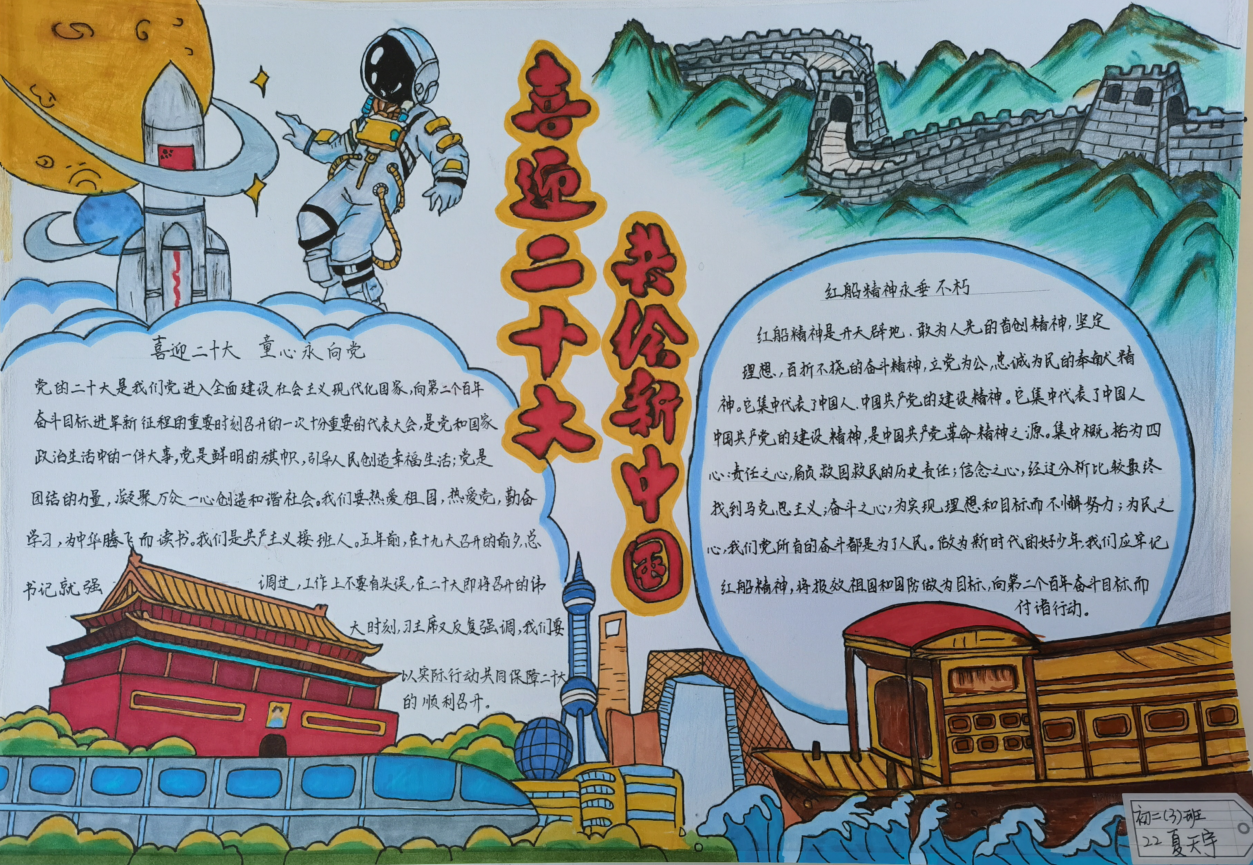 喜迎二十大
共绘新中国
喜迎二十大 童心永向党
党的二十大是我们党进入全面建设社会主义现代化国家,向第二个百年
奋斗目标进军新征程的重要时刻召开的一次十分重要的代表大会,是党和国家
政治生活中的一件大事,党是鲜明的旗帜,引导人民创造幸福生活;党是
团结的力量,凝聚万众一心创造和谐社会。我们要热爱祖国,热爱党,勤奋
学习,为中华腾飞而读书。我们是共产主义接班人。五年前,在十九大召开的前夕,总
书记就强调过,工作上不要有失误,在二十大即将召开的伟
大时刻,习主席又反复强调,我们要
以实际行动共同保障二十大
的顺利召开。
红船精神永垂不朽
红船精神是开天辟地、敢为人先的首创精神,坚定
理想,百折不挠的奋斗精神,立党为公,忠诚为民的奉献精
神。它集中代表了中国人、中国共产党的建设精神。它集中代表了中国人
中国共产党的建设精神,是中国共产党革命精神之源。集中概括为四
心:责任之心,肩负救国救民的历史责任;信念之心,经过分析比较最终
找到马克思主义;奋斗之心,为实现理想和目标而不懈努力;为民之
心,我们党所有的奋斗都是为了人民。做为新时代的好少年,我们应牢记
红船精神,将报效祖国和国防做为目标,向第二个百年奋斗目标而
付诸行动。
初二(3)班
22 夏天宇